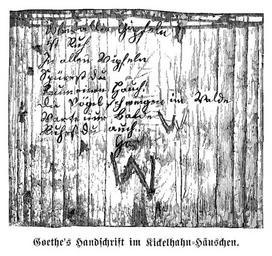 Über allen Gipfeln
ist Ruh
In allen Wipfeln
Spürest du
Kaum einen Hauch.
Die Vögel schweigen im Walde
Warte nur balde
Ruhest du auch.
W
W
Goethe's Handschrift im Kickelhahn-Häuschen.